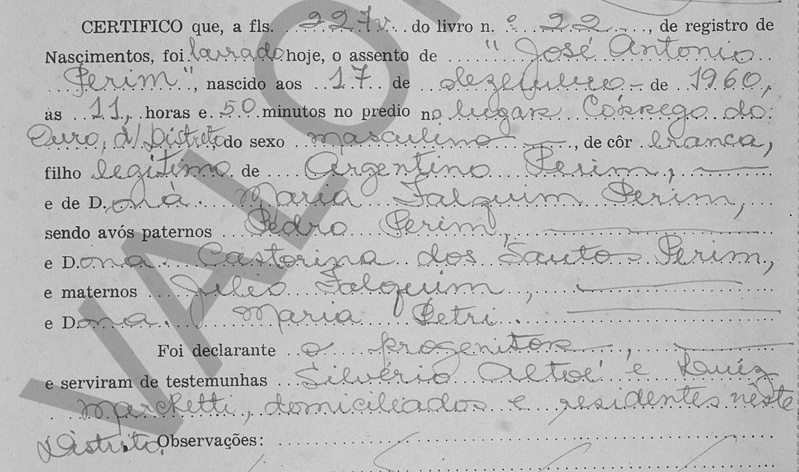 CERTIFICO que, a fls. 227v. do livro n.º 22, de registro de
Nascimentos, foi lavrado hoje, o assento de "José Antonio
Perim", nascido aos 17 de dezembro - de 1960,
às 11, horas e 50 minutos no predio no lugar Córrego do
Ouro, d/Distreto do sexo masculino, de côr branca,
filho legitimo de Argentino Perim,
e de D. ona Maria Falquim Perim,
sendo avós paternos Pedro Perim,
e Dona Castorina dos Santos Perim,
e maternos Julio Falquim,
e Dona Maria Petri
Foi declarante o progenitor,
e serviram de testemunhas Silverio Altoé e Luiz
Marchetti, domiciliados e residentes néste
Distrito. Observações:
VALO